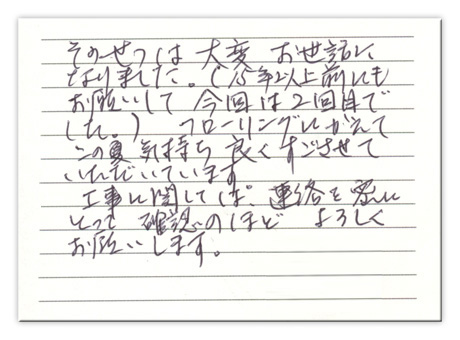 そのせつは 大変 お世話に
なりました。(15年以上前にも
お願いして 今回は2回目で
した。) フローリングにかえて
この夏 気持ち 良く すごさせて
いただいています
工事に関しては、連絡を密に
とって 確認のほど よろしく
お願いします。